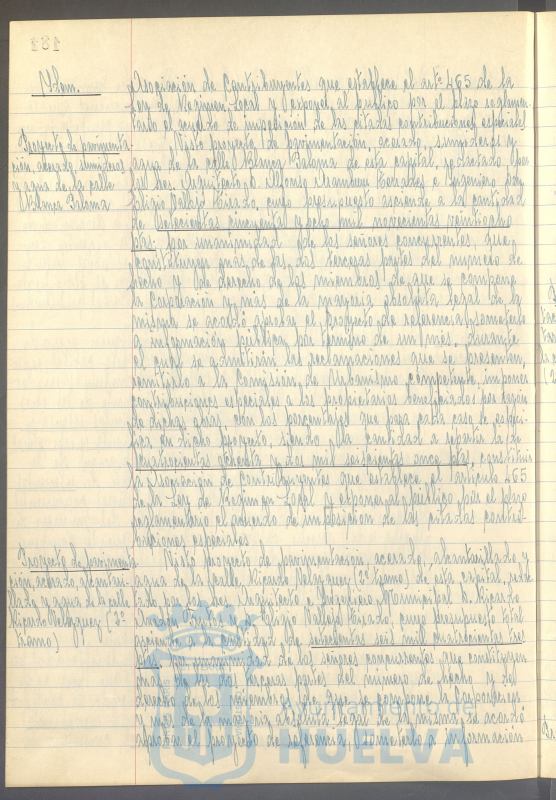 187
Idem.
Asociación de Contribuyentes que establece el artº 465 de la
Ley de Régimen Local y exponer al público por el plazo reglamen-
tario el acuerdo de imposición de las citadas contribuciones especiales
Proyecto de pavimenta-
ción, acerado, sumideros
y agua de la calle
Blanca Paloma
Visto proyecto de pavimentación, acerado, sumideros y
agua de la calle Blanca Paloma de esta capital, redactado por
el Sres. Arquitecto D. Alfonso y Ingeniero D.
Vallejo cuyo presupuesto asciende a la cantidad
de setecientas cincuenta y ocho mil novecientas veinticuatro
ptas; por unanimidad de los señores concurrentes, que
constituyen más de las dos terceras partes del número de
hecho y de derecho de los miembros de que se compone
la Corporación y más de la mayoría absoluta legal de la
misma se acordó aprobar el Proyecto de referencia, someterlo
a información pública por término de un mes, durante
el cual se admitirán las reclamaciones que se presenten,
remitirlo a la Comisión de Urbanismo competente, imponer
contribuciones especiales a los propietarios beneficiados por razón
de dichas obras, con los porcentajes que para cada caso se especi-
fica en dicho proyecto, siendo la cantidad a repartir la de
cuatrocientas ochenta y dos mil seiscientas once ptas, constituir
la Asociación de Contribuyentes que establece el artículo 465
de la Ley de Régimen Local y exponer al público por el plazo
reglamentario el acuerdo de imposición de las citadas contri-
buciones especiales.
Proyecto de pavimenta-
ción, acerado, alcantari-
llado y agua de la calle
Ricardo Velazquez (2º
tramo)
Visto proyecto de pavimentación, acerado, alcantarillado y
agua de la calle Ricardo Velazquez (2º tramo) de esta capital, redac-
tado por los Sres. Arquitecto e Ingeniero Municipal D. Ricardo
y Vallejo cuyo presupuesto total
asciende a la cantidad de setecientas seis mil cuatrocientas tres
ptas. por unanimidad de los señores concurrentes que constituyen
más de las dos terceras partes del número de hecho y de
derecho de los miembros de que se compone la Corporación
y más de la mayoría absoluta legal de la misma se acordó
aprobar el proyecto de referencia, someterlo a información
Ayuntamiento de
HUELVA